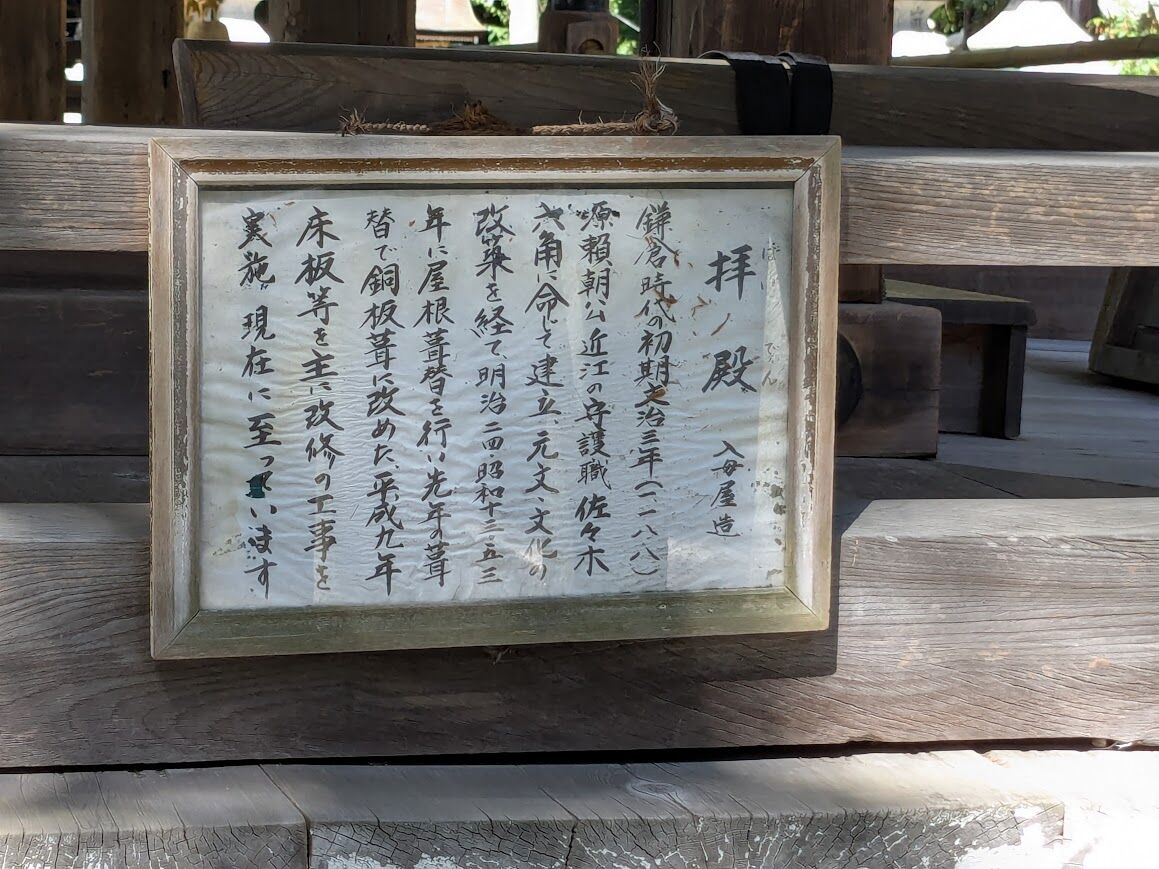 拝ノ殿 入母屋造
鎌倉時代の初期文治三年(一一八八)
源頼朝公近江の守護職佐々木
六角に命じて建立、元文、文化の
改築を経て、明治二四昭和十三・五三
年に屋根葺替を行い先年の葺
替で銅板葺に改めた、平成九年
床板等を主に改修の工事を
実施。現在に至っています